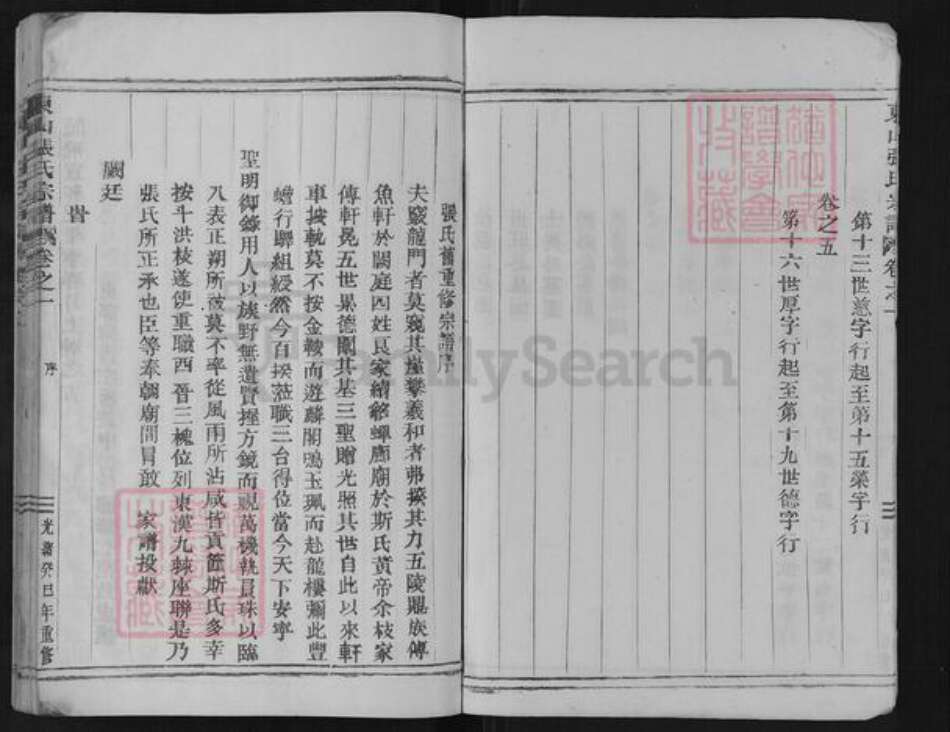 第十三世慈字行起至第十五榮字行
卷之五
第十六世厚字行起至第十九世德字行
張氏舊重修宗譜序
夫竅龍門者莫窺其崖攀羲和者弗揆其力五陵鼎族傳
魚軒於闕庭四姓良家續貂蟬廊廟於斯氏黃帝余枝家
傳軒冕五世累德闡其基三聖贈光照其世自此以來軒
車接軌莫不按金鞍而遊麟閣鳴玉珮而赴龍樓彌此豐
蟾行驛組綬然今百揆蒞職三台得位當今天下安寧
聖明御籙用人以族野無遺賢握方鏡而視萬機執員珠以臨
八表正朔所被莫不率從風雨所沾咸皆貢篚斯氏多幸
按斗洪枝遂使重職西晉三槐位列東漢九棘座聯是乃
張氏所正承也臣等奉朝廟間冒敢 家譜投獻
闕廷
旹
東山張氏宗譜 卷之一
序
光緒癸巳年重修
FamilySearch